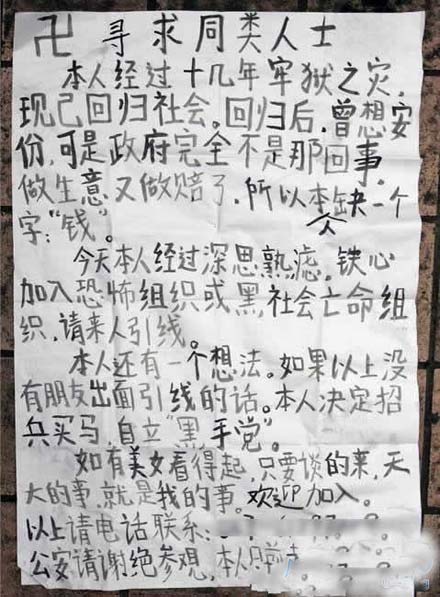 卍 寻求同类人士
本人经过十几年牢狱之灾,
现已回归社会。回归后,曾想安
份,可是政府完全不是那回事。
做生意又做赔了,所以本人缺一个
字:“钱”。
今天本人经过深思熟虑,铁心
加入恐怖组织或黑社会亡命组
织,请来人引线。
本人还有一个想法。如果以上没
有朋友出面引线的话。本人决定招
兵买马,自立“黑手党”。
如有美女看得起,只要谈的来,天
大的事,就是我的事。欢迎加入。
以上请电话联系:
公安请谢绝参观,本人只